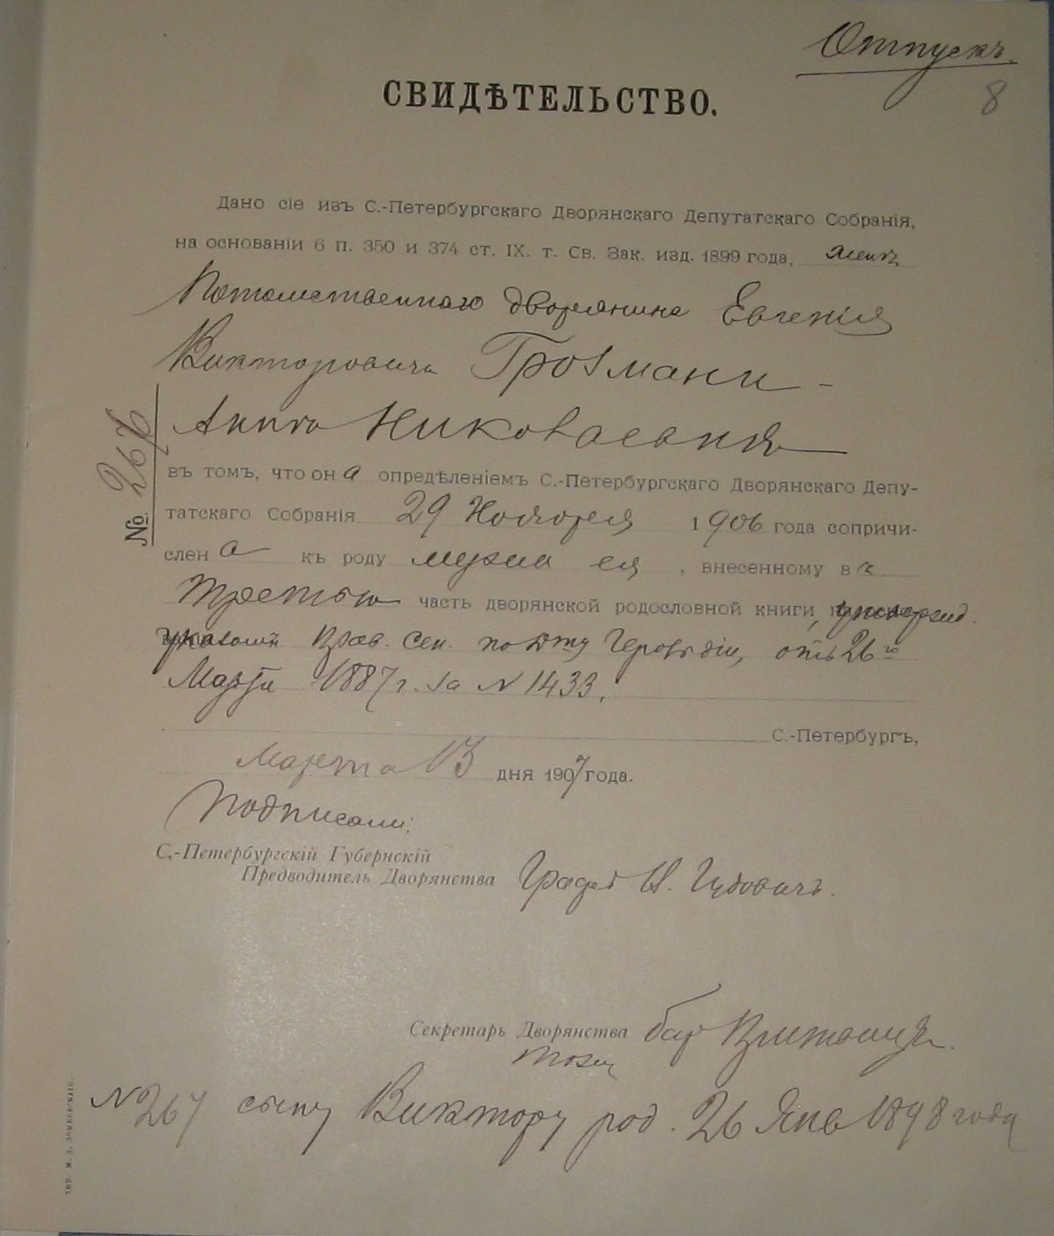 Отпускъ.
8
СВИДѢТЕЛЬСТВО.
Дано сіе изъ С.-Петербургскаго Дворянскаго Депутатскаго Собранія,
на основаніи 6 п. 350 и 374 ст. IX. т. Св. Зак. изд. 1899 года, женѣ
Потомственнаго дворянина Евгенія
Викторовича Гротманъ
Аннѣ Николаевнѣ
№ 266
въ томъ, что она опредѣленіемъ С.-Петербургскаго Дворянскаго Депу-
татскаго Собранія 29 Ноября 1906 года сопричи-
слена къ роду мужа ея, внесенному въ
третью часть дворянской родословной книги,
указомъ Прав. Сен. по Д-ту Герольдіи, отъ 26го
Марта 1887 г. за N 1433.
С.-Петербургъ,
Марта 13 дня 1907 года.
Подписали:
С.-Петербургскій Губернскій
Предводитель Дворянства Графъ Гудовичъ.
Секретарь Дворянства бар
N 267 сыну Виктору род. 26 Янв 1898 года